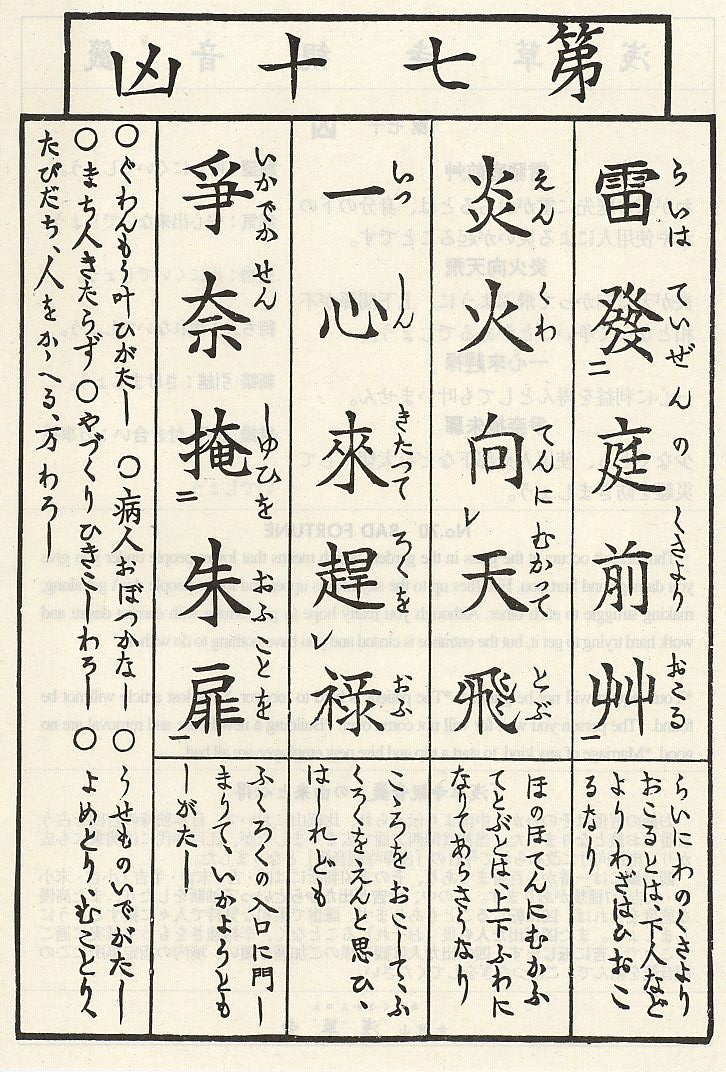 第七十凶
雷發二庭前艸一
らいは ていぜんの くさより おこる
らいにわのくさより
おこるとは、下人など
よりわざはひおこ
るなり
炎火向レ天飛
えんくわ てんに むかつて とぶ
ほのほてんにむかふ
てとぶとは、上下ふわに
なりて
一心來趕レ禄
いつ しん きたつて ろくを おふ
こころをおこしてふ
くろをえんと思ひ、
はしれども
爭奈掩二朱扉
いかでか せん しゆひを おふ ことを
ふくろくの入口に門し
まりて、いかうとも
しがたし
○ぐわんもう叶ひがたし ○病人おぼつかなし ○うせものいでがたし
○まち人きたらず ○やづくりひきこしわろし ○よめとり、むことり
たびだち、人をかゝへる、方わろし